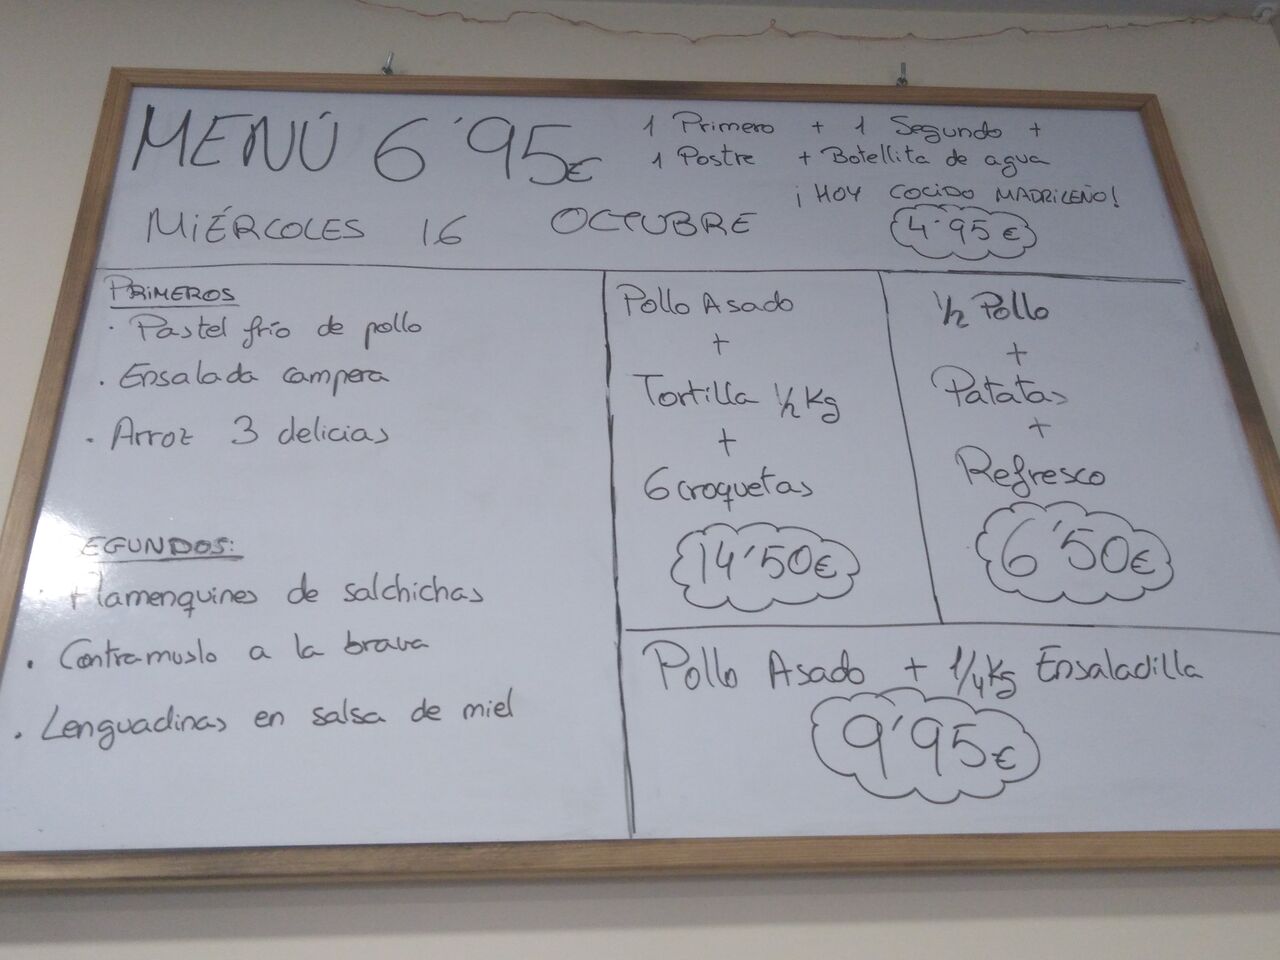 MENÚ 6'95€
1 Primero + 1 Segundo +
1 Postre + Botellita de agua
¡HOY COCIDO MADRILEÑO!
4'95€
MIÉRCOLES 16 OCTUBRE
PRIMEROS
· Pastel frío de pollo
· Ensalada campera
· Arroz 3 delicias
EGUNDOS:
· Flamenquines de salchichas
· Contramuslo a la brava
· Lenguadinas en salsa de miel
Pollo Asado
+
Tortilla 1/2 Kg
+
6 croquetas
14'50€
1/2 Pollo
+
Patatas
+
Refresco
6'50€
Pollo Asado + 1/4 Kg Ensaladilla
9'95€